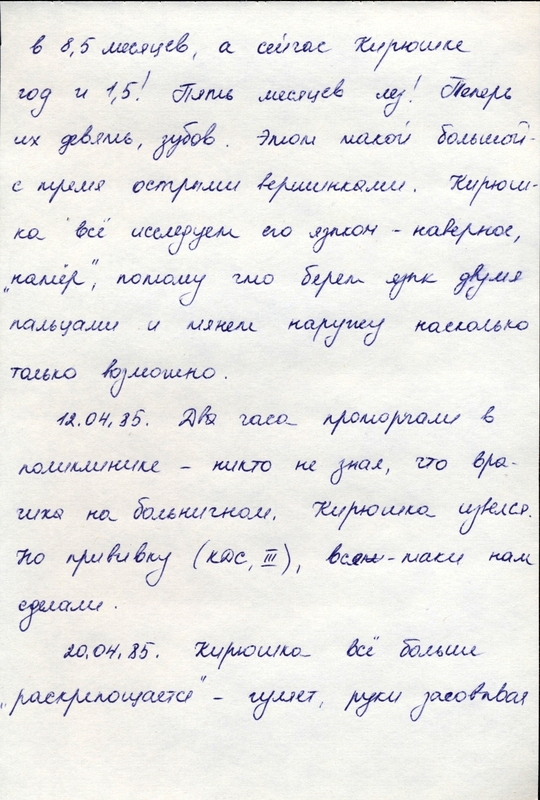 в 8,5 месяцев, а сейчас Кирюшке
год и 1,5! Пять месяцев лез! Теперь
их девять, зубов. Этот такой большой -
с тремя острыми вершинками. Кирюш-
ка всё исследует его языком - наверное,
"натёр", потому что берет язык двумя
пальцами и тянет наружу насколько
только возможно.
12.04.85. Два часа проторчали в
поликлинике - никто не знал, что вра-
чиха на больничном. Кирюшка извелся.
Но прививку (КДС, III), все-таки нам
сделали.
20.04.85. Кирюшка всё больше
"раскрепощается" - гуляет, руки засовывая